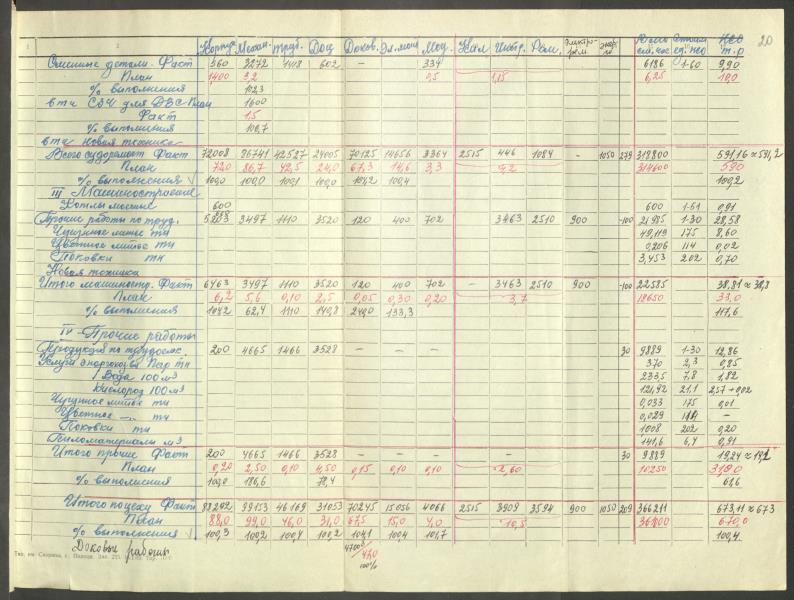 1 2 Корпус Механ. Труб. Дод Доков. Эл.мон Мод. Кал Инстр. Рем. Электр-рем энерг 20
Сменные детали. Факт 560 3272 1418 602 — 334 6186 1-60 9,90
План 1400 3,2 0,5 1,15 6,25 10,0
% выполнения 102,3
в тч СЗЧ для ДВС План 1600
Факт 1,5
% выполнения 100,7
в тч новая техника
Всего судоремонт Факт 72008 86741 42527 24005 70125 14656 3364 2515 446 1084 - 1050 279 318800 591,16 ≈ 591,2
План 72,0 86,7 42,5 24,0 67,3 14,6 3,3 314600 590
% выполнения 100,0 100,0 100,1 100,0 104,2 100,4 100,2
III Машиностроение
Котлы моечные 600 600 1-51 0,91
Прочие работы по труд. 3497 1110 3520 120 400 702 3463 2510 900 -100 21985 1-30 28,58
Чугунное литье тн 49,119 175 8,60
Цветное литье тн 0,206 114 0,02
Поковки тн 3,453 202 0,70
Новая техника
Итого машиностр. Факт 6463 3497 1110 3520 120 400 702 - 3463 2510 900 -100 22585 38,81 ≈ 38,8
План 6,2 5,6 0,10 2,5 0,05 0,30 0,20 3,7 18650 33,0
% выполнения 104,2 62,4 1110 140,8 240,0 133,3 117,6
IV - Прочие работы
Продукция по трудоемк. 200 4665 1466 3528 — — — 30 9889 1-30 12,86
Услуги энергоходы Пар тн 370 2,3 0,85
Вода 100 м3 233,5 7,8 1,82
Кислород 100 м3 121,92 21,1 2,57 + 0,02
Чугунное литье тн 0,033 175 0,01
Цветное —„— тн 0,029 114 —
Поковки тн 1008 202 0,20
Пиломатериалы м3 141,6 6,4 0,91
Итого прочие Факт 200 4665 1466 3528 — — — — — 30 9889
План 0,20 2,50 0,10 4,50 0,15 0,10 0,10 2,60 10250
% выполнения 100,0 186,6 78,4 61,6
Итого по цеху Факт 99153 46169 31053 70245 15056 4066 2515 3909 3594 900 1050 209 366211 673,11 ≈ 673
План 88,0 99,0 46,0 31,0 67,5 15,0 4,0 10,5 670,0
% выполнения 100,3 100,2 100,4 100,2 104,1 100,4 101,7 100,4
Доковые работы 47,0
100%